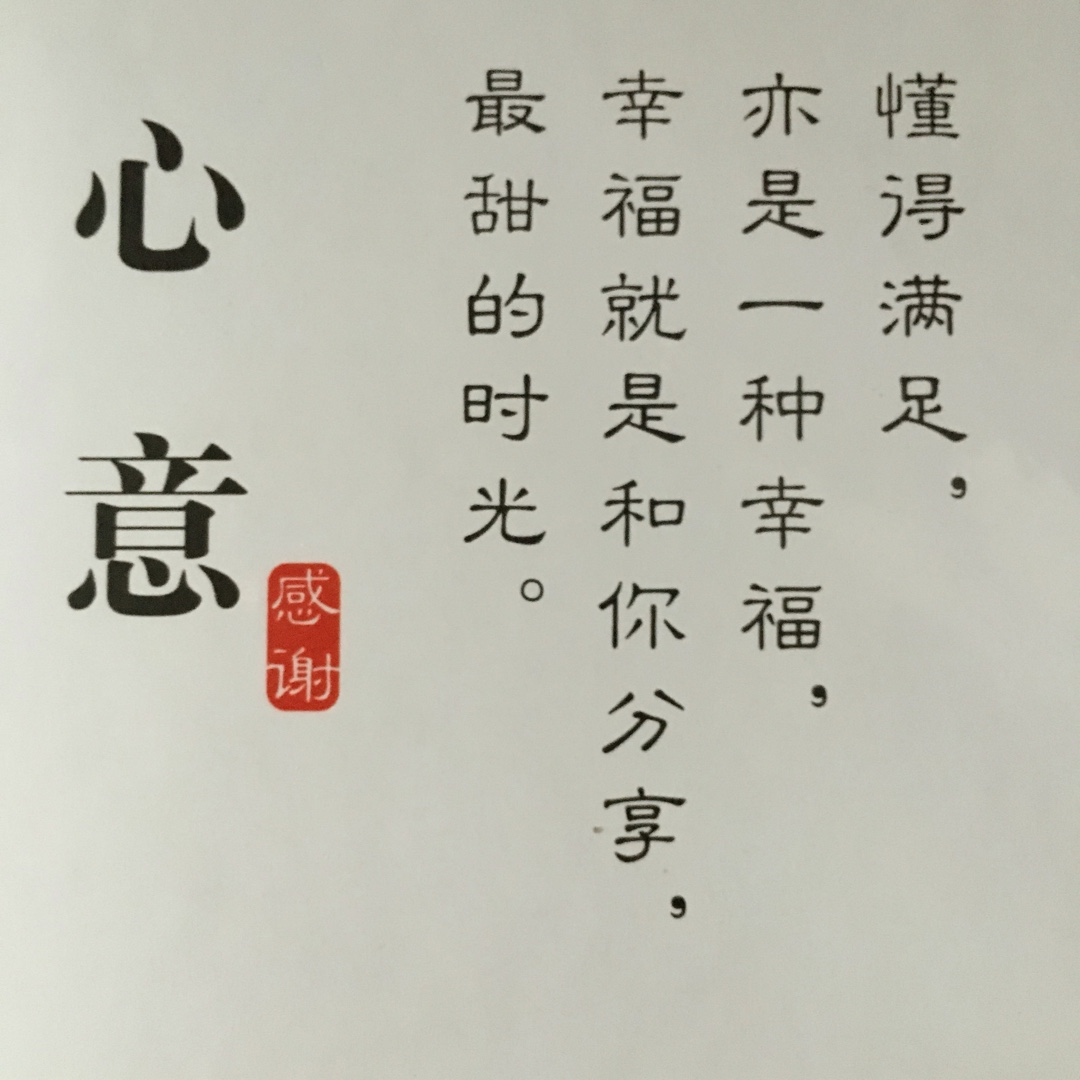 懂得满足，
亦是一种幸福，
幸福就是和你分享，
最甜的时光。
心意
感谢